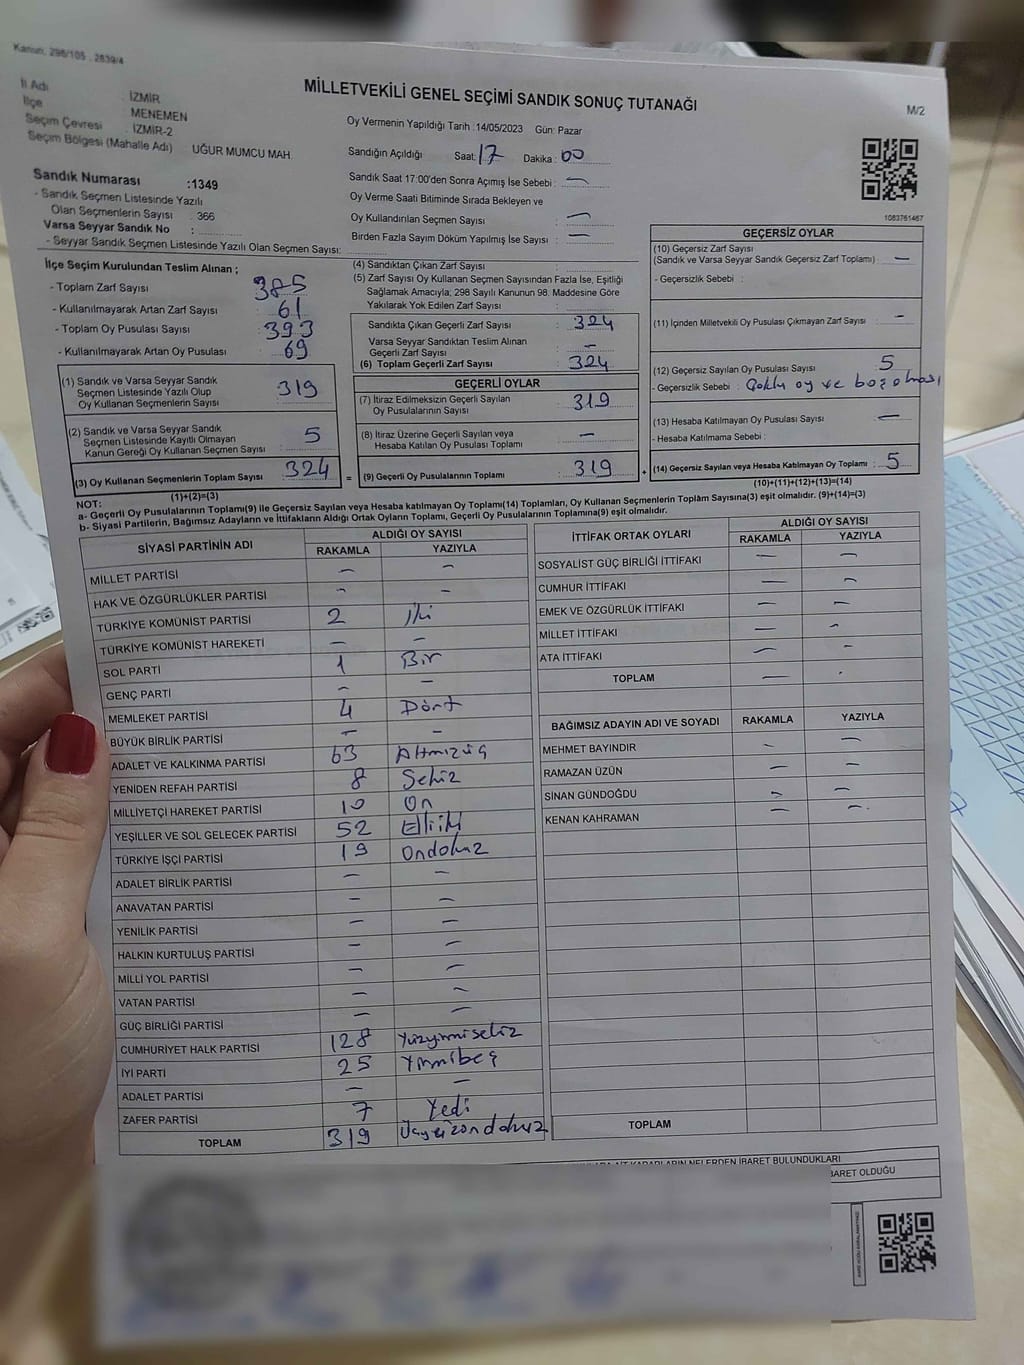 Kanun: 298/105 . 2839/4
MİLLETVEKİLİ GENEL SEÇİMİ SANDIK SONUÇ TUTANAĞI
M/2
İl Adı : İZMİR
İlçe : MENEMEN
Seçim Çevresi : İZMİR-2
Seçim Bölgesi (Mahalle Adı) : UĞUR MUMCU MAH.
Oy Vermenin Yapıldığı Tarih :14/05/2023 Gün: Pazar
Sandığın Açıldığı Saat: 17 Dakika: 00
Sandık Saat 17:00'den Sonra Açımış İse Sebebi : —
Oy Verme Saati Bitiminde Sırada Bekleyen ve
Oy Kullandırılan Seçmen Sayısı : —
Birden Fazla Sayım Döküm Yapılmış İse Sayısı : —
Sandık Numarası :1349
- Sandık Seçmen Listesinde Yazılı
Olan Seçmenlerin Sayısı : 366
Varsa Seyyar Sandık No :
- Seyyar Sandık Seçmen Listesinde Yazılı Olan Seçmen Sayısı:
1083761467
İlçe Seçim Kurulundan Teslim Alınan ;
- Toplam Zarf Sayısı : 385
- Kullanılmayarak Artan Zarf Sayısı : 61
- Toplam Oy Pusulası Sayısı : 393
- Kullanılmayarak Artan Oy Pusulası : 69
(1) Sandık ve Varsa Seyyar Sandık
Seçmen Listesinde Yazılı Olup
Oy Kullanan Seçmenlerin Sayısı : 319
(2) Sandık ve Varsa Seyyar Sandık
Seçmen Listesinde Kayıtlı Olmayan
Kanun Gereği Oy Kullanan Seçmen Sayısı : 5
(3) Oy Kullanan Seçmenlerin Toplam Sayısı : 324
(1)+(2)=(3)
(4) Sandıktan Çıkan Zarf Sayısı :
(5) Zarf Sayısı Oy Kullanan Seçmen Sayısından Fazla İse, Eşitliği
Sağlamak Amacıyla; 298 Sayılı Kanunun 98. Maddesine Göre
Yakılarak Yok Edilen Zarf Sayısı :
Sandıkta Çıkan Geçerli Zarf Sayısı : 324
Varsa Seyyar Sandıktan Teslim Alınan
Geçerli Zarf Sayısı : —
(6) Toplam Geçerli Zarf Sayısı : 324
GEÇERLİ OYLAR
(7) İtiraz Edilmeksizin Geçerli Sayılan
Oy Pusulalarının Sayısı : 319
(8) İtiraz Üzerine Geçerli Sayılan veya
Hesaba Katılan Oy Pusulası Toplamı : —
= (9) Geçerli Oy Pusulalarının Toplamı : 319
GEÇERSİZ OYLAR
(10) Geçersiz Zarf Sayısı
(Sandık ve Varsa Seyyar Sandık Geçersiz Zarf Toplamı) : —
- Geçersizlik Sebebi :
(11) İçinden Milletvekili Oy Pusulası Çıkmayan Zarf Sayısı : -
(12) Geçersiz Sayılan Oy Pusulası Sayısı : 5
- Geçersizlik Sebebi : Çoklu oy ve boş olması
(13) Hesaba Katılmayan Oy Pusulası Sayısı : —
- Hesaba Katılmama Sebebi :
+ (14) Geçersiz Sayılan veya Hesaba Katılmayan Oy Toplamı : 5
(10)+(11)+(12)+(13)=(14)
NOT:
a- Geçerli Oy Pusulalarının Toplamı(9) ile Geçersiz Sayılan veya Hesaba katılmayan Oy Toplamı(14) Toplamları, Oy Kullanan Seçmenlerin Toplam Sayısına(3) eşit olmalıdır. (9)+(14)=(3)
b- Siyasi Partilerin, Bağımsız Adayların ve İttifakların Aldığı Ortak Oyların Toplamı, Geçerli Oy Pusulalarının Toplamına(9) eşit olmalıdır.
SİYASİ PARTİNİN ADI ALDIĞI OY SAYISI
RAKAMLA YAZIYLA
MİLLET PARTİSİ — —
HAK VE ÖZGÜRLÜKLER PARTİSİ — —
TÜRKİYE KOMÜNİST PARTİSİ 2 İki
TÜRKİYE KOMÜNİST HAREKETİ — —
SOL PARTİ 1 Bir
GENÇ PARTİ — —
MEMLEKET PARTİSİ 4 Dört
BÜYÜK BİRLİK PARTİSİ — —
ADALET VE KALKINMA PARTİSİ 63 Altmışüç
YENİDEN REFAH PARTİSİ 8 Sekiz
MİLLİYETÇİ HAREKET PARTİSİ 10 On
YEŞİLLER VE SOL GELECEK PARTİSİ 52 Elliiki
TÜRKİYE İŞÇİ PARTİSİ 19 Ondokuz
ADALET BİRLİK PARTİSİ — —
ANAVATAN PARTİSİ — —
YENİLİK PARTİSİ — —
HALKIN KURTULUŞ PARTİSİ — —
MİLLİ YOL PARTİSİ — —
VATAN PARTİSİ — —
GÜÇ BİRLİĞİ PARTİSİ — —
CUMHURİYET HALK PARTİSİ 128 Yüzyirmisekiz
İYİ PARTİ 25 Yirmibeş
ADALET PARTİSİ — —
ZAFER PARTİSİ 7 Yedi
TOPLAM 319 Üçyüzondokuz
İTTİFAK ORTAK OYLARI ALDIĞI OY SAYISI
RAKAMLA YAZIYLA
SOSYALİST GÜÇ BİRLİĞİ İTTİFAKI — —
CUMHUR İTTİFAKI — —
EMEK VE ÖZGÜRLÜK İTTİFAKI — —
MİLLET İTTİFAKI — —
ATA İTTİFAKI — —
TOPLAM —
BAĞIMSIZ ADAYIN ADI VE SOYADI RAKAMLA YAZIYLA
MEHMET BAYINDIR — —
RAMAZAN ÜZÜN — —
SİNAN GÜNDOĞDU — —
KENAN KAHRAMAN — —
TOPLAM
KARARLARIN NELERDEN İBARET BULUNDUKLARI
BARET OLDUĞU